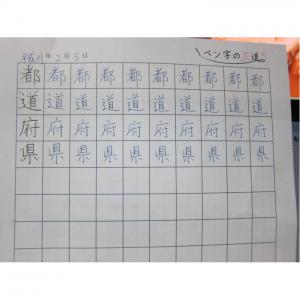 平成31年2月5日
ペン字の花道
都都都都都都都都都
道道道道道道道道道
府府府府府府府府府
県県県県県県県県県